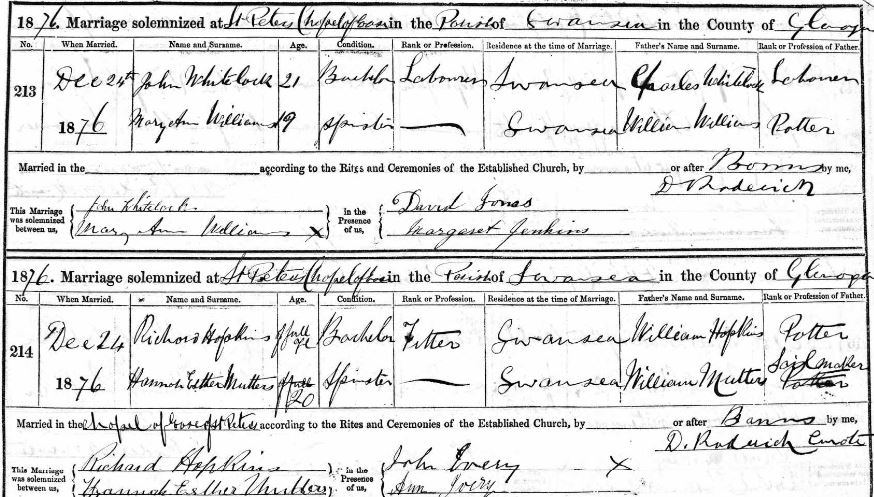 1876. Marriage solemnized at St Peters Chapel of Ease in the Parish of Swansea in the County of Glamorgan
No. When Married. Name and Surname. Age. Condition. Rank or Profession. Residence at the time of Marriage. Father's Name and Surname. Rank or Profession of Father.
213 Dec 24th John Whitelock 21 Bachelor Labourer Swansea Charles Whitelock Labourer
1876 Mary Ann Williams 19 Spinster Swansea William Williams Potter
Married in the according to the Rites and Ceremonies of the Established Church, by or after Banns by me,
D Roderick
This Marriage was solemnized between us, John Whitelock in the Presence of us, David Jones
Mary Ann Williams X Margaret Jenkins
1876. Marriage solemnized at St Peters Chapel of Ease in the Parish of Swansea in the County of
No. When Married. Name and Surname. Age. Condition. Rank or Profession. Residence at the time of Marriage. Father's Name and Surname. Rank or Profession of Father.
214 Dec 24 Richard Hopkins of full age Bachelor Fitter Swansea William Hopkins Potter
1876 Hannah Esther Mutters of full 20 Spinster Swansea William Mutters Sail Maker Potter
Married in the Chapel of Ease of St Peters according to the Rites and Ceremonies of the Established Church, by or after Banns by me,
D. Roderick Curate
This Marriage was solemnized between us, Richard Hopkins in the Presence of us, John Every X
Hannah Esther Mutters Ann